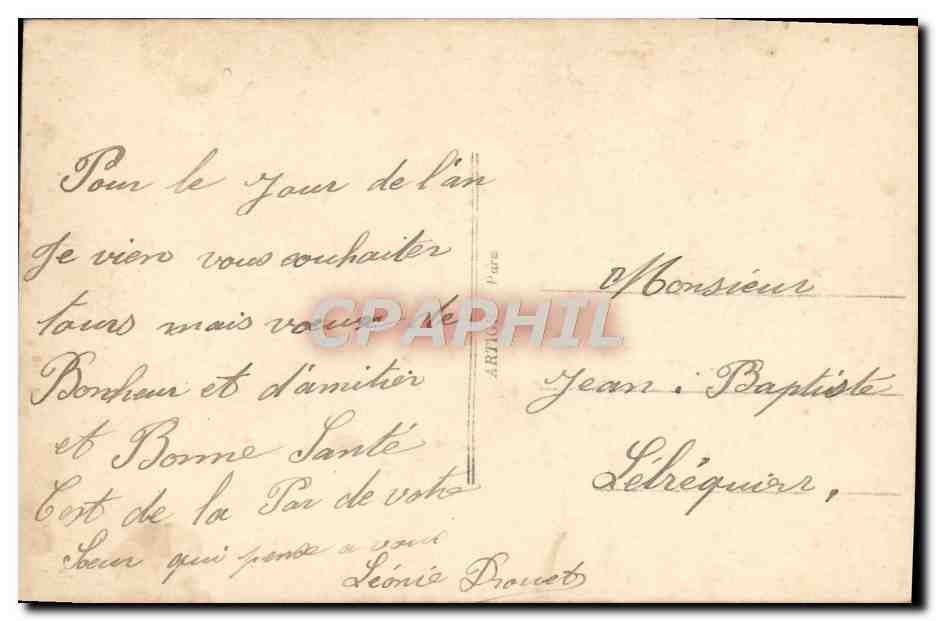 Pour le Jour de l'an
Je vien vous souhaiter
tous mais vœux de
Bonheur et d'amitier
et Bonne Santé
C'est de la Par de votre
Sœur qui pense a vous
Léonie Drouet
CPAPHIL
Paris
Monsieur
Jean . Baptiste